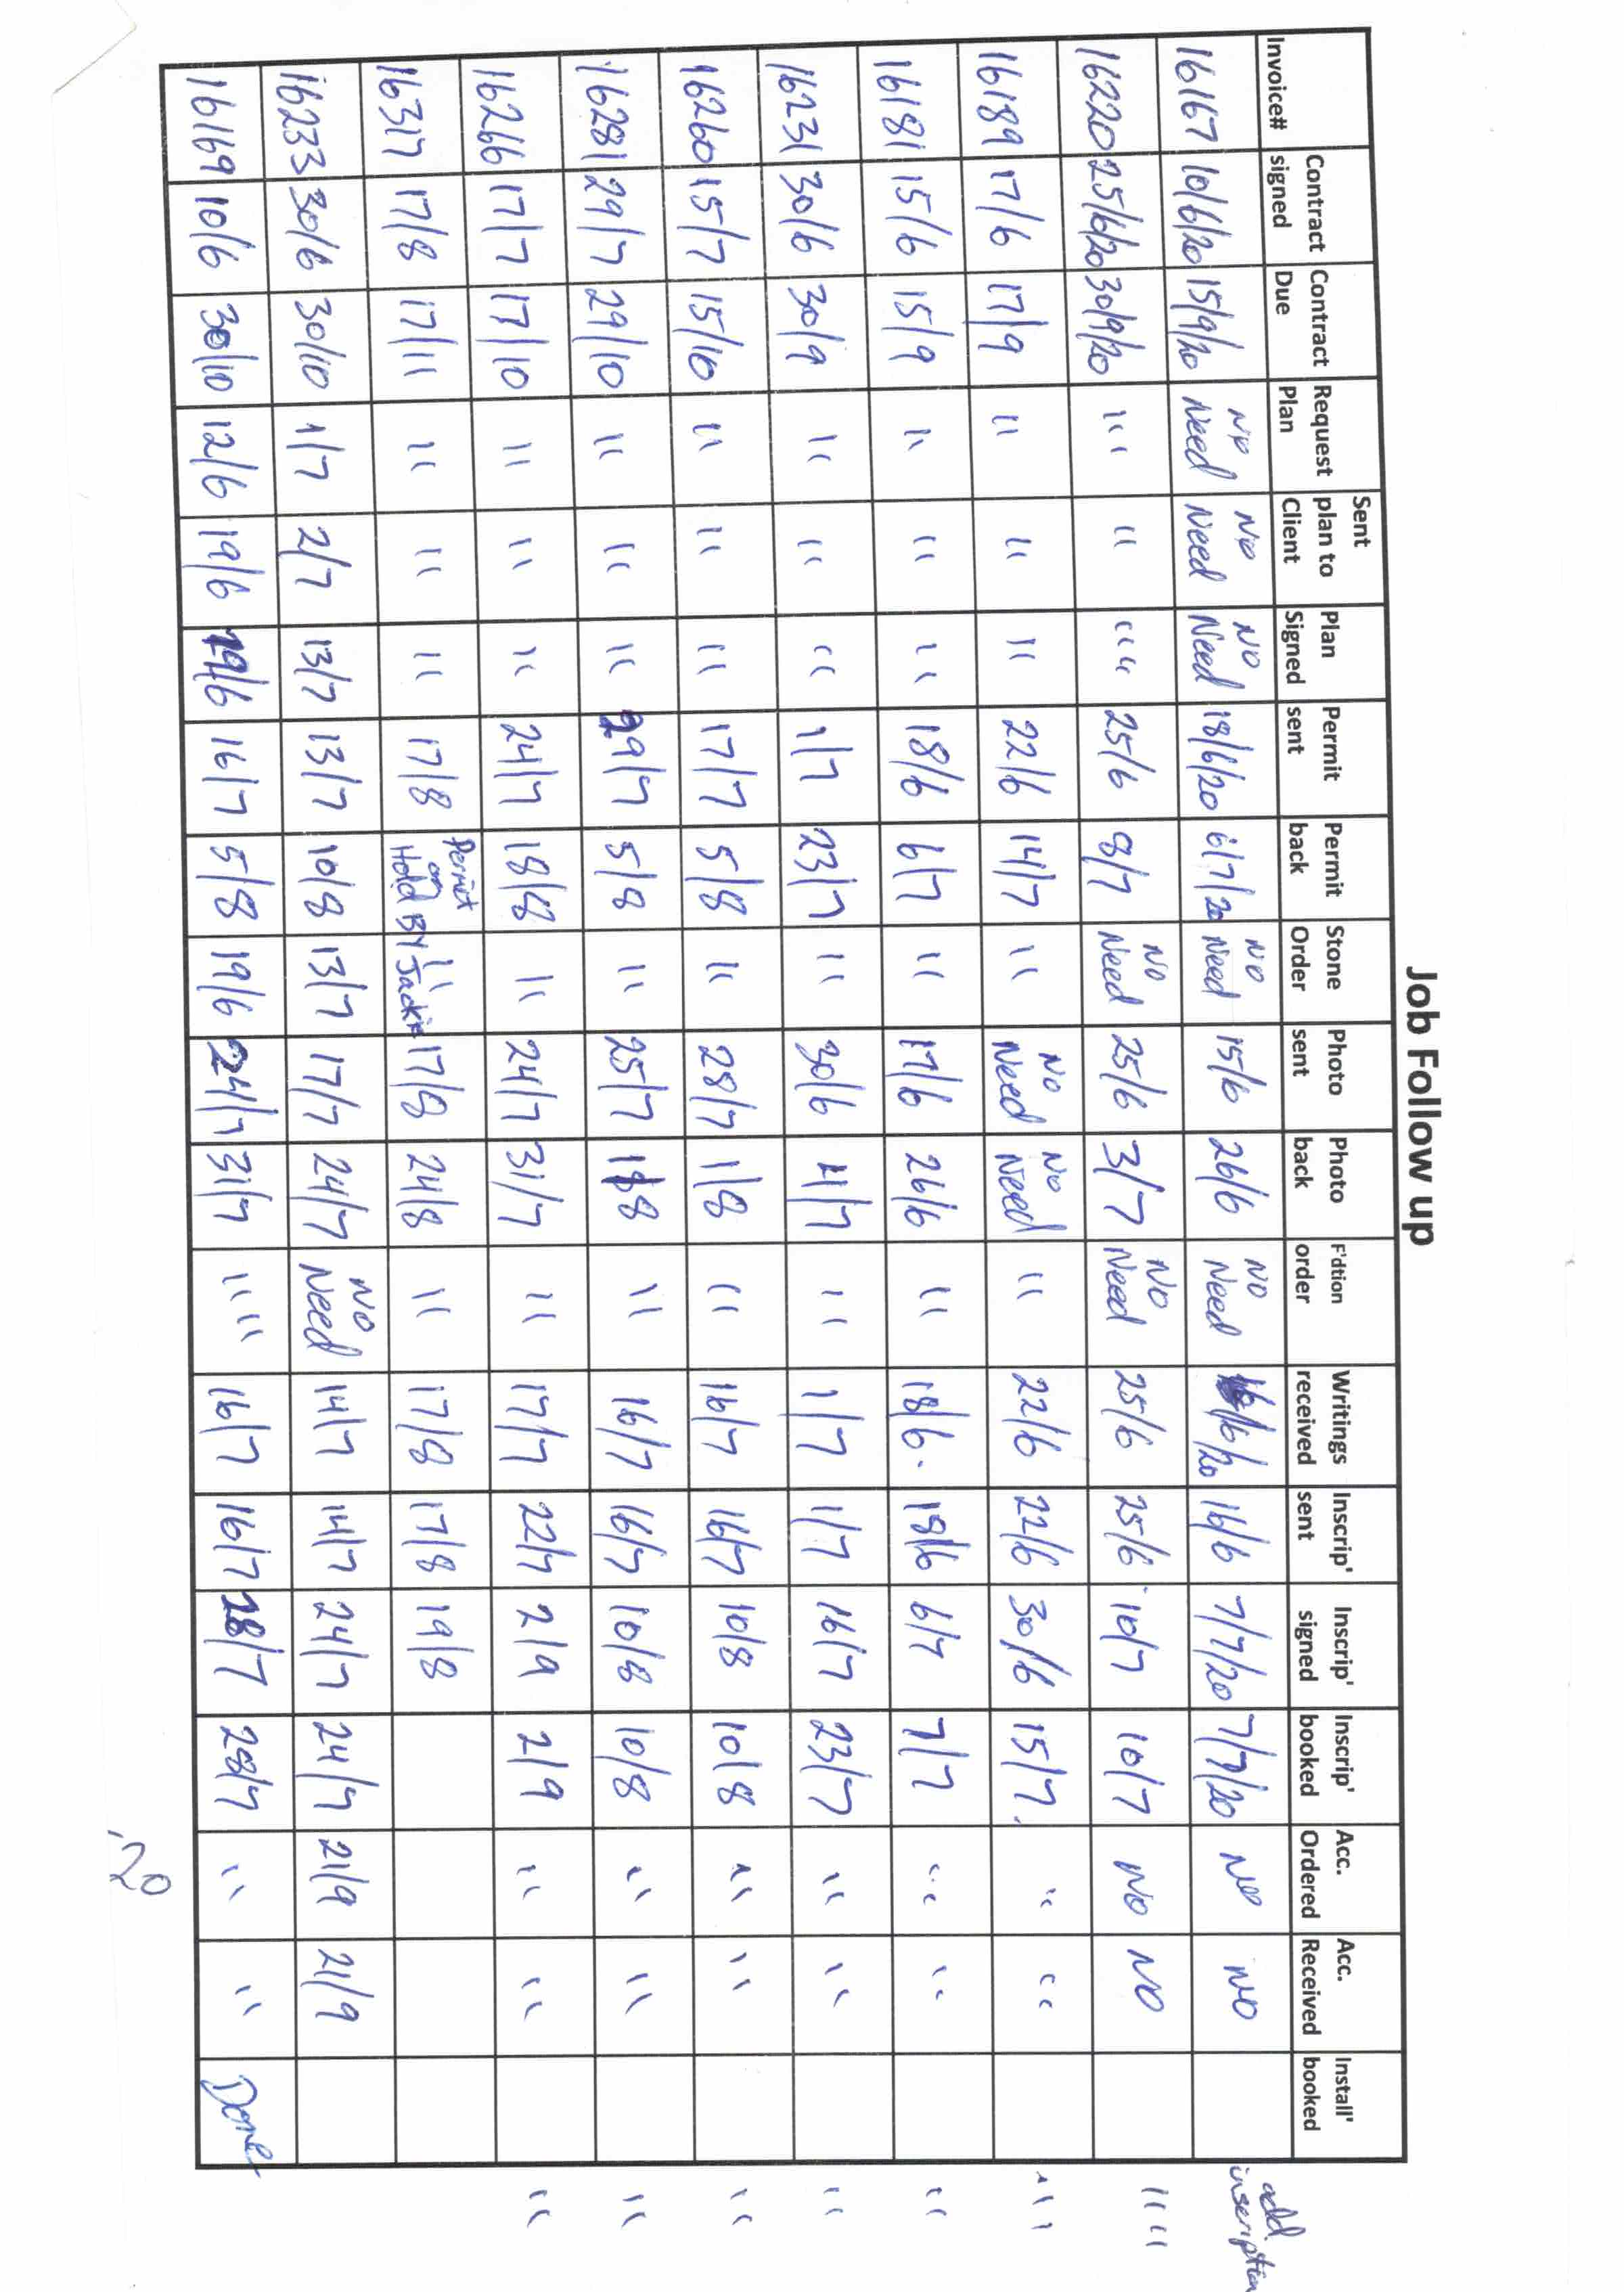 Job Follow up
Invoice# | Contract signed | Contract Due | Request Plan | Sent plan to Client | Plan Signed | Permit sent | Permit back | Stone Order | Photo sent | Photo back | F'dtion order | Writings received | Inscrip' sent | Inscrip' signed | Inscrip' booked | Acc. Ordered | Acc. Received | Install' booked
16167 | 10/6/20 | 15/9/20 | No Need | No Need | No Need | 18/6/20 | 6/7/20 | No Need | 15/6 | 26/6 | No Need | 16/6/20 | 16/6 | 7/7/20 | 7/7/20 | No | No | | add inscription
16220 | 25/6/20 | 30/9/20 | " | " | " | 25/6 | 8/7 | No Need | 25/6 | 3/7 | No Need | 25/6 | 25/6 | 10/7 | 10/7 | No | No | | " "
16189 | 17/6 | 17/9 | " | " | " | 22/6 | 14/7 | " | No Need | No Need | " | 22/6 | 22/6 | 30/6 | 15/7. | " | " | | "
16181 | 15/6 | 15/9 | " | " | " | 18/6 | 6/7 | " | 17/6 | 26/6 | " | 18/6. | 18/6 | 6/7 | 7/7 | " | " | | "
16231 | 30/6 | 30/9 | " | " | " | 1/7 | 23/7 | " | 30/6 | | " | 1/7 | 1/7 | 16/7 | 23/7 | " | " | | "
16260 | 15/7 | 15/10 | " | " | " | 17/7 | 5/8 | " | 28/7 | 1/8 | " | 16/7 | 16/7 | 10/8 | 10/8 | " | " | | "
16281 | 29/7 | 29/10 | " | " | " | 29/7 | 5/8 | " | 25/7 | | " | 16/7 | 16/7 | 10/8 | 10/8 | " | " | | "
16266 | 17/7 | 17/10 | " | " | " | 24/7 | 18/8 | " | 24/7 | 31/7 | " | 17/7 | 22/7 | 2/9 | 2/9 | " | " | | "
16317 | 17/8 | 17/11 | " | " | " | 17/8 | Permit on Hold By Jackie | " | 17/8 | 24/8 | " | 17/8 | 17/8 | 19/8
16233 | 30/6 | 30/10 | 1/7 | 2/7 | 13/7 | 13/7 | 10/8 | 13/7 | 17/7 | 24/7 | No Need | 14/7 | 14/7 | 24/7 | 24/7 | 21/9 | 21/9
16169 | 10/6 | 30/10 | 12/6 | 19/6 | 19/6 | 16/7 | 5/8 | 19/6 | 24/7 | 31/7 | " " | 16/7 | 16/7 | 28/7 | 28/7 | " | " | Done
'20